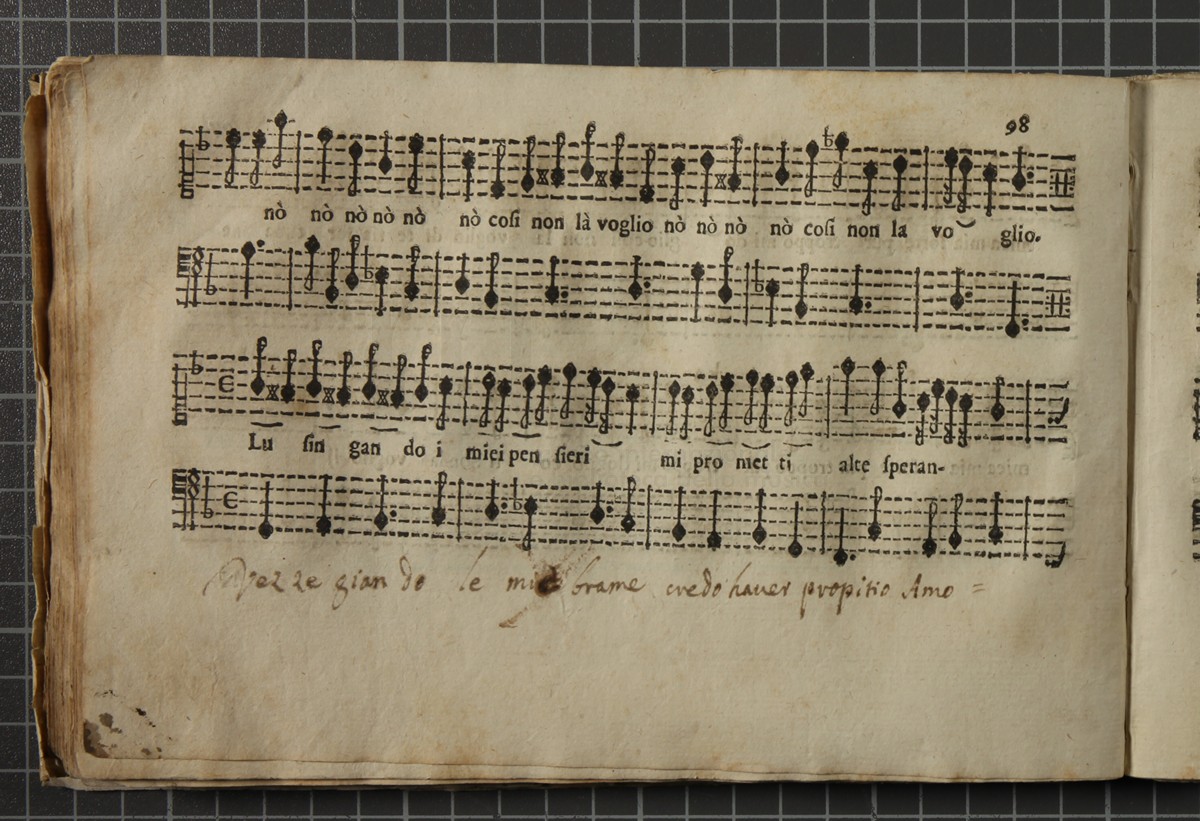 98
nò nò nò nò nò nò coſi non là voglio nò nò nò nò coſi non la vo glio.
Lu ſin gan do i miei pen ſieri mi pro met ti alte ſperan-
Vezze gian do le mie brame credo hauer propitio Amo =